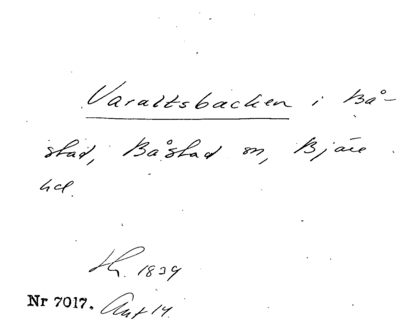 Varaltsbacken i Bå-
stad, Båstad sn, Bjäre
hd.
Th. 1839
Nr 7017. Ant 14.